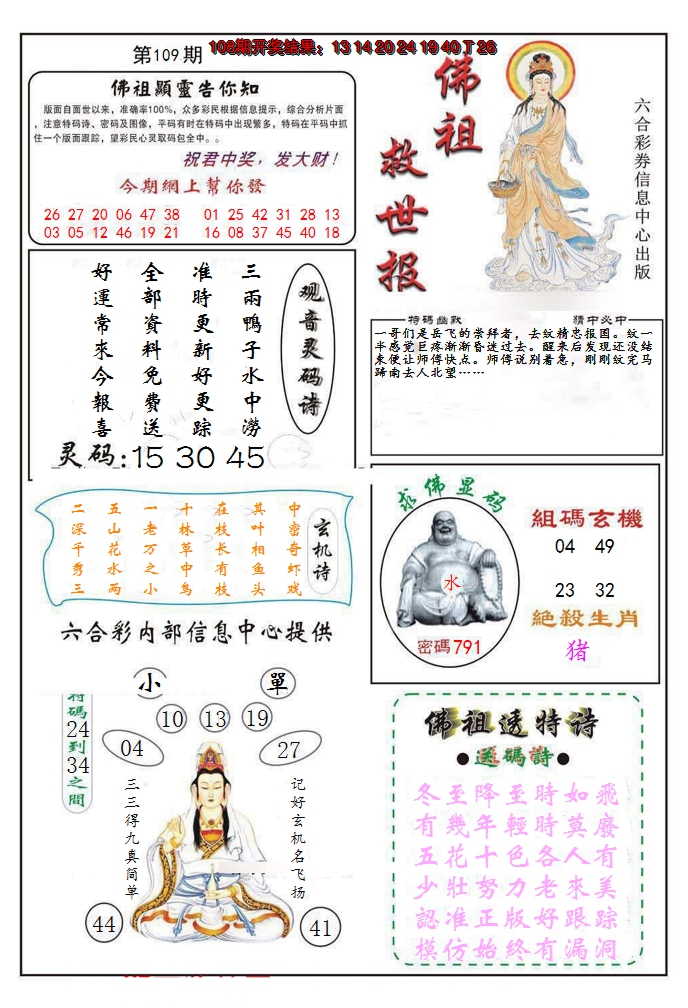 第109.期
108期开奖结果：13 14 20 24 19 40丁26
佛祖顯靈告你知
版面自面世以来，准确率100%，众多彩民根据信息提示，综合分析片面
，注意特码诗、密码及图像，平码有时在特码中出现繁多，特码在平码中抓
住一个版面跟踪，望彩民心灵取码包全中。。
祝君中奖，发大财！
今期網上幫你發
26 27 20 06 47 38 01 25 42 31 28 13
03 05 12 46 19 21 16 08 37 45 40 18
佛祖
救世报
六合彩券信息中心出版
观音灵码诗
三兩鴨子水中澇
准時更新好更踪
全部資料免費送
好運常來今報喜
灵码:15 30 45
特碼幽默
猜中必中
一哥们是岳飞的崇拜者，去蚊精忠报国。蚊一
半感觉巨疼渐渐昏迷过去。醒来后发现还没结
束便让师傅快点。师傅说别着急，刚刚蚊完马
蹄南去人北望……
玄机诗
中密奇虾戏
其叶相鱼头
在枝长有枝
十林草中鸟
一老万之小
五山花水两
二深千秀三
六合彩内部信息中心提供
求佛显码
水
密碼791
組碼玄機
04 49
23 32
絕殺生肖
猪
小
單
特碼24到34之間
10
13
19
04
27
三三得九真简单
记好玄机名飞扬
44
41
佛祖透特诗
●送碼詩●
冬至降至時如飛
有幾年輕時莫廢
五花十色各人有
少壯努力老來美
認准正版好跟踪
模仿始終有漏洞